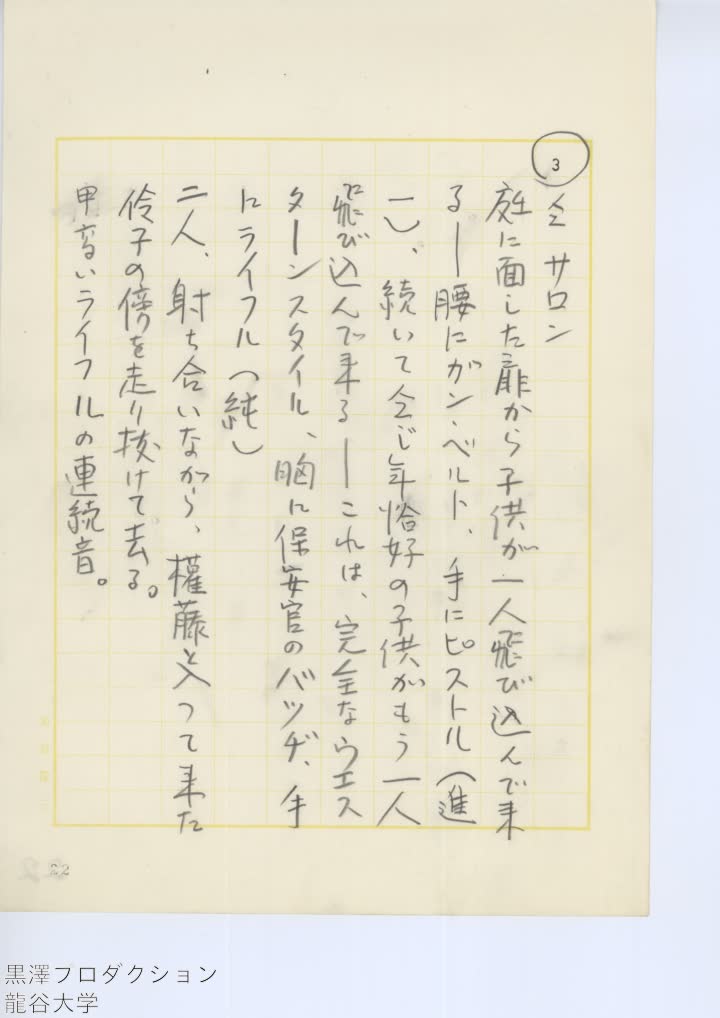 3
仝 サロン
庭に面した扉から子供が一人飛び込んで来
る——腰にガン・ベルト、手にピストル（進
一）、続いて仝じ年恰好の子供がもう一人
飛び込んで来る——これは、完全なウエス
ターンスタイル、胸に保安官のバッヂ、手
にライフル（純）
二人、射ち合いながら、權藤と入って来た
伶子の傍を走り抜けて去る。
甲高いライフルの連続音。
22
黒澤プロダクション
龍谷大学